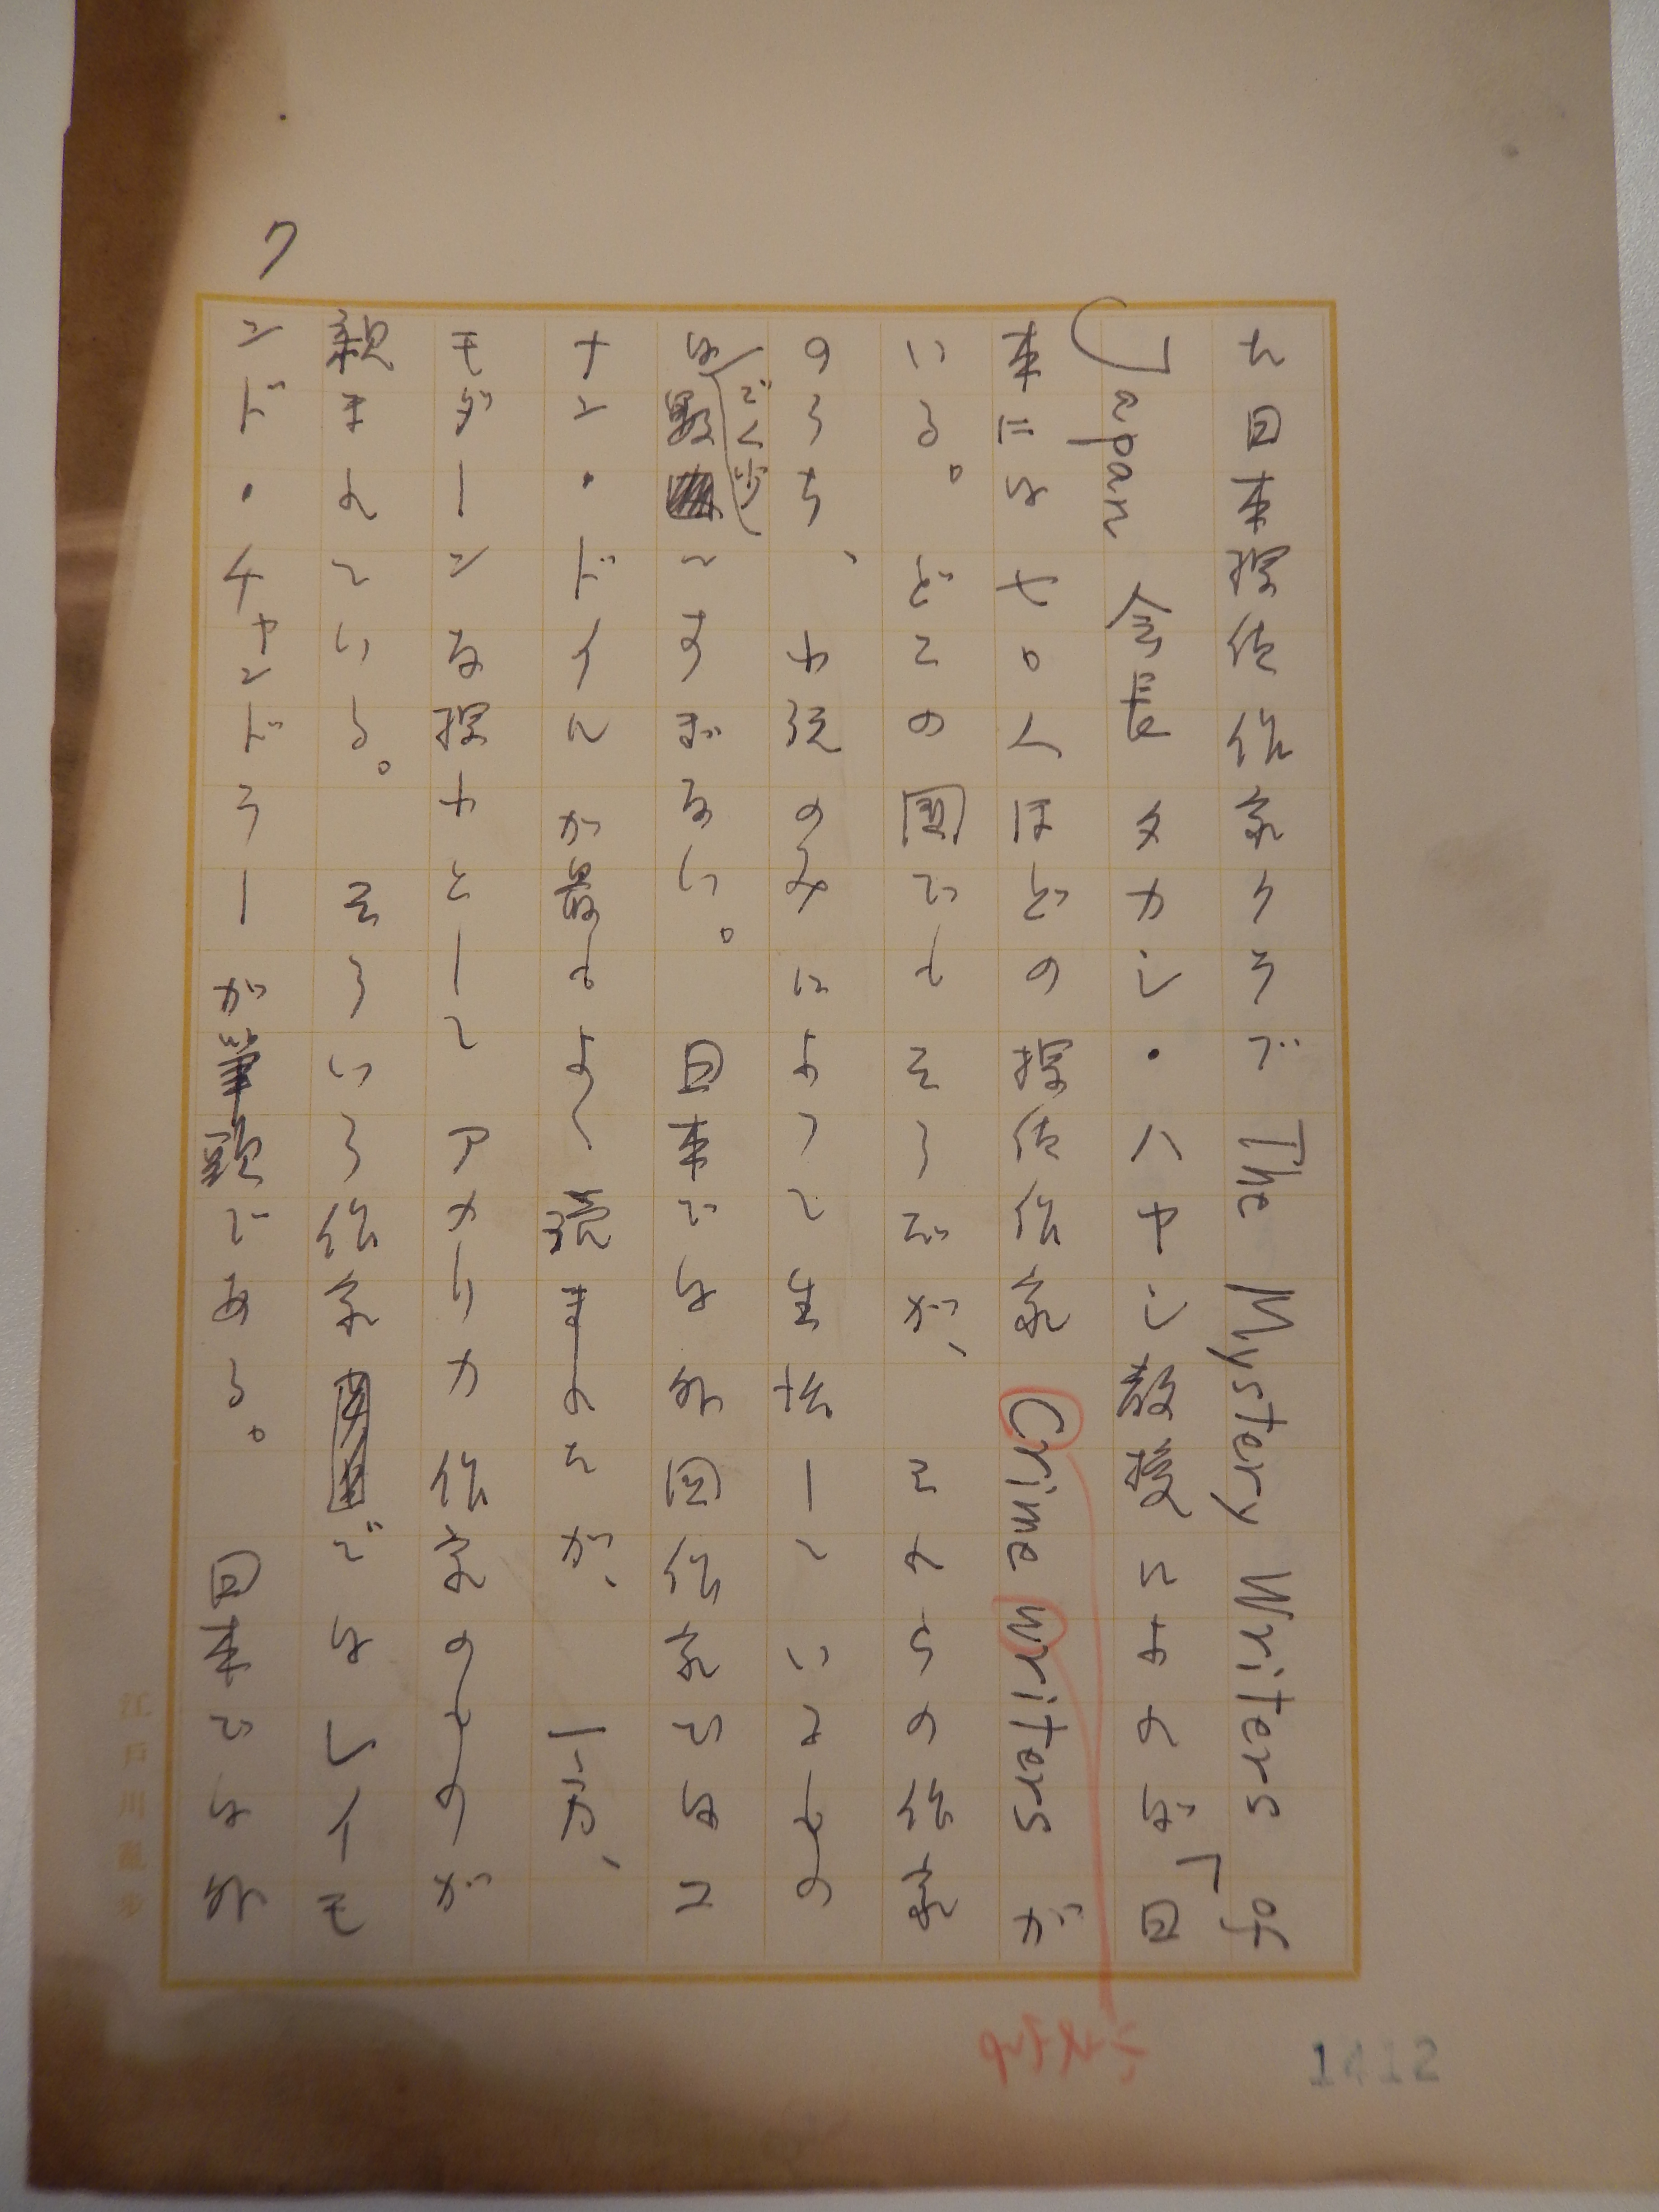 た日本探偵作家クラブ The Mystery Writers of
Japan 会長タカシ・ハヤシ教授によれば「日
本には七〇人ほどの探偵作家 Crime Writers が
いる。どこの国でもそうだが、これらの作家
のうち、小説のみによって生活しているもの
はごく少数にすぎない。日本では外国作家ではコ
ナン・ドイルが最もよく読まれたが、一方、
モダーンな探小としてアメリカ作家のものが
親まれている。そういう作家ではレイモ
ンド・チャンドラーが筆頭である。日本では外
7
江戸川亂歩
1412